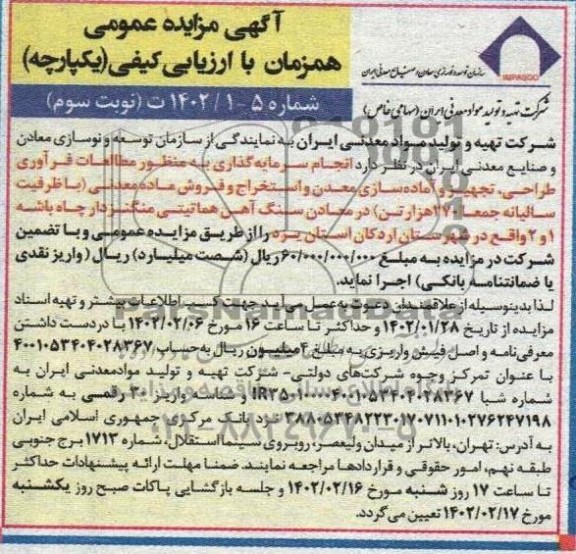 آگهی مزایده عمومی
همزمان با ارزیابی کیفی (یکپارچه)
شماره ۵-۱۴۰۲/۱ ت (نوبت سوم)
IMPASCO
سازمان توسعه و نوسازی معادن و صنایع معدنی ایران
شرکت تهیه و تولید مواد معدنی ایران (سهامی خاص)
شرکت تهیه و تولید مواد معدنی ایران به نمایندگی از سازمان توسعه و نوسازی معادن
و صنایع معدنی ایران در نظر دارد انجام سرمایه گذاری به منظور مطالعات فرآوری
طراحی، تجهیز و آماده سازی معدن و استخراج و فروش ماده معدنی (با ظرفیت
سالیانه جمعا ۲۷۰ هزار تن) در معادن سنگ آهن هماتیتی منگنز دار چاه باشه
۱ و ۲ واقع در شهرستان اردکان استان یزد را از طریق مزایده عمومی و با تضمین
شرکت در مزایده به مبلغ ۶۰/۰۰۰/۰۰۰/۰۰۰ ریال (شصت میلیارد) ریال (واریز نقدی
یا ضمانتنامه بانکی) اجرا نماید.
لذا بدینوسیله از علاقمندان دعوت به عمل می آید جهت کسب اطلاعات بیشتر و تهیه اسناد
مزایده از تاریخ ۱۴۰۲/۰۱/۲۸ و حداکثر تا ساعت ۱۶ مورخ ۱۴۰۲/۰۲/۰۶ با در دست داشتن
معرفی نامه و اصل فیش واریزی به مبلغ ۴ میلیون ریال به حساب ۴۰۰۱۰۵۳۴۰۴۰۲۸۳۶۷
با عنوان تمرکز وجوه شرکت های دولتی- شرکت تهیه و تولید موادمعدنی ایران به
شماره شبا و شناسه واریز ۳۰ رقمی به شماره
نزد بانک مرکزی جمهوری اسلامی ایران
به آدرس: تهران، بالاتر از میدان ولیعصر، روبروی سینما استقلال، شماره ۱۷۱۳ برج جنوبی
طبقه نهم، امور حقوقی و قراردادها مراجعه نمایند. ضمنا مهلت ارائه پیشنهادات حداکثر
تا ساعت ۱۷ روز شنبه مورخ ۱۴۰۲/۰۲/۱۶ و جلسه بازگشایی پاکات صبح روز یکشنبه
مورخ ۱۴۰۲/۰۲/۱۷ تعیین می گردد.
ParsNamadData
۰۲۱-۸۸۳۴۹۶۷۰-۵